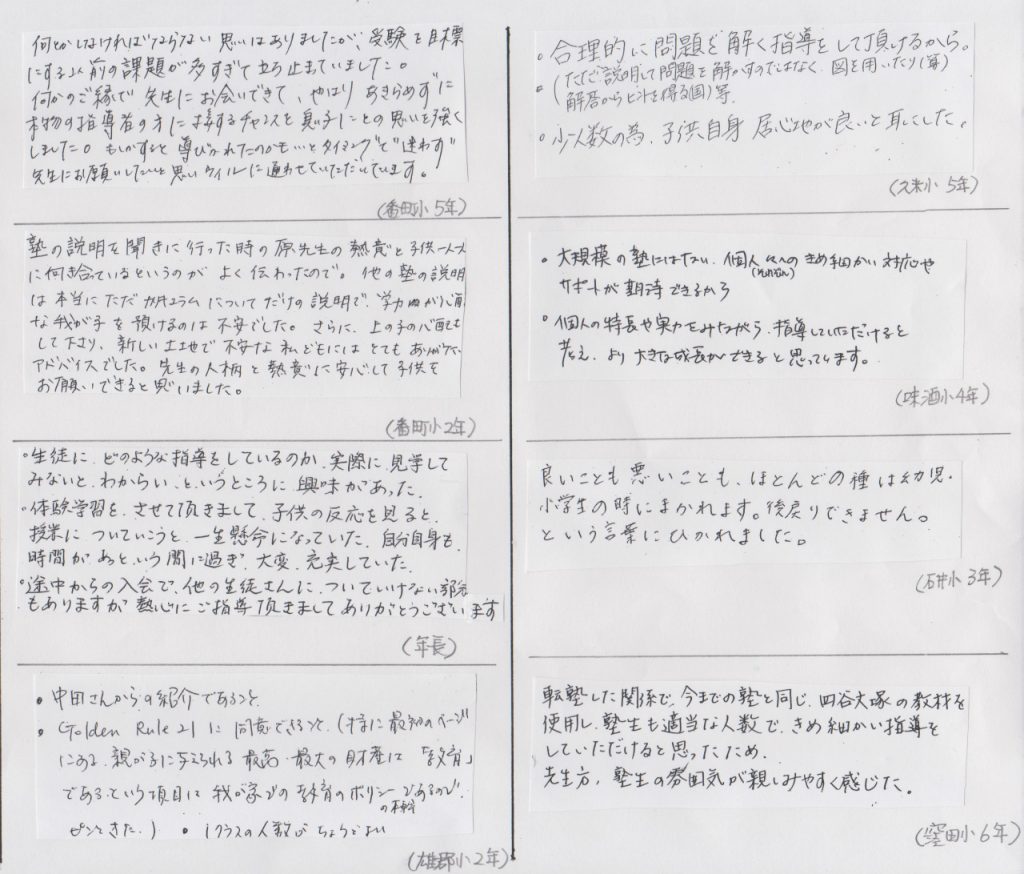 何とかしなければならない思いはありましたが、受験を目標
にする以前の課題が多すぎて立ち止まっていました。
何かのご縁で先生にお会いできて、やはりあきらめずに
本物の指導者の方に接するチャンスを息子にとの思いを強く
しました。もしかすると導びかれたのかも…とタイミングと"迷わず"
先生にお願いしたいと思いウィルに通わせていただいています。
(番町小5年)
塾の説明を聞きに行った時の原先生の熱意と子供一人一人
に向き合っているというのがよく伝わったので。他の塾の説明
は本当にただカリキュラムについてだけの説明で、学力面が心配
な我が子を預けるのは不安でした。さらに、上の子の心配も
して下さり、新しい土地で不安な私どもにはとてもありがたい
アドバイスでした。先生の人柄と熱意に安心して子供を
お願いできると思いました。
(番町小2年)
・生徒に、どのような指導をしているのか、実際に、見学して
みないと、わからい、というところに興味があった。
・体験学習を、させて頂きまして、子供の反応を見ると、
授業に、ついていこうと、一生懸命になっていた。自分自身も、
時間があっという間に過ぎ、大変、充実していた。
・途中からの入会で、他の生徒さんに、ついていけない部分
もありますが熱心にご指導頂きましてありがとうございます
(年長)
・中田さんからの紹介であること
・Golden Rule 21 に同意できること、(特に最初のページ
にある、親が子に与えられる最高・最大の財産は「教育」
である、という項目に我が家での教育のポリシーであるので、
ピンときた。) ・1クラスの人数がちょうどよい
(雄郡小2年)
・合理的に問題を解く指導をして頂けるから。
・(ただ説明して問題を解かすのではなく、図を用いたり(算)
解答からヒントを得る(国)等、
・少人数の為、子供自身 居心地が良いと耳にした。
(久米小5年)
・大規模の塾にはない、個人々へのきめ細かい対応や
サポートが期待できるから
・個人の特長や実力をみながら、指導していただけると
考え、より大きな成長ができると思っています。
(味酒小4年)
良いことも悪いことも、ほとんどの種は幼児・
小学生の時にまかれます。後戻りできません。
という言葉にひかれました。
(石井小3年)
転塾した関係で、今までの塾と同じ、四谷大塚の教材を
使用し、塾生も適当な人数で、きめ細かい指導を
していただけると思ったため。
先生方、塾生の雰囲気が親しみやすく感じた。
(窪田小6年)